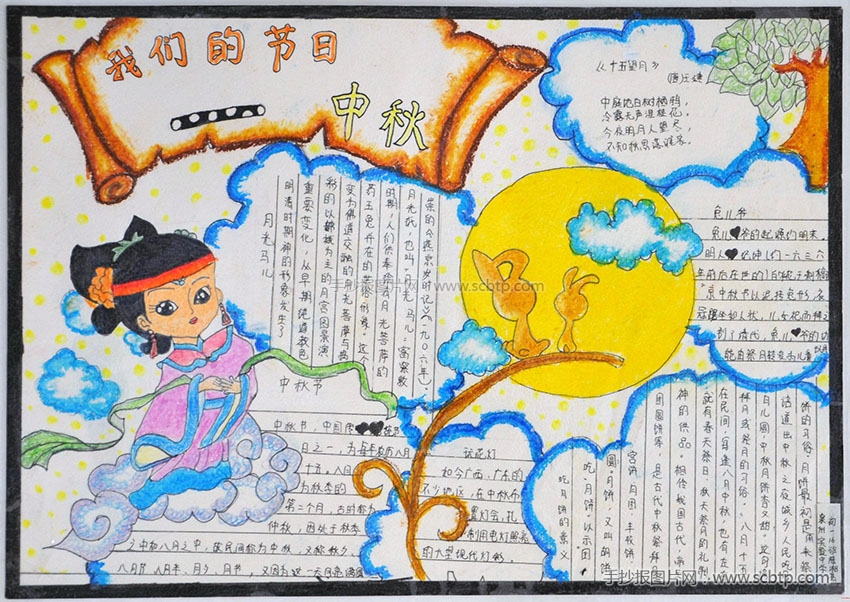 我们的节日
中秋
《十五望月》
(唐)王建
中庭地白树栖鸦,
冷露无声湿桂花。
今夜明月人望尽,
不知秋思落谁家。
兔儿爷
兔儿爷的起源约明末。
明人
年前后在世的
到了清代,兔儿爷的功
能由祭月转变为儿童
月光马儿
明清时期神的形象发生了
重要变化,从早期纯道教色
彩的以嫦娥为主的月宫图景演
变为佛道交融的月光菩萨与捣
药玉兔并在的世俗形象。这个
时期,人们供奉绘有月光菩萨的
月光纸,也叫“月光马儿”。富察敦
崇的《燕京岁时记》(一九〇六年)
手抄报图片网 www.scbtp.com
中秋节
中秋节,中国传
日之一,为每年农历八月
十五。八月
为秋季的
第二个月,古时称为
仲秋,因处于秋季
之中和八月之中,故民间称为中秋,又称秋夕、
八月节、八月半、月夕、月节,又因为这一天月亮满圆
玩花灯
如今广西、广东的
不少地区,在中秋布
置灯会,扎
制用电灯照亮
的大型现代灯彩。
吃月饼的意义
吃“月饼”以示“团
圆”。月饼,又叫胡饼、
宫饼、月团、丰收饼、
团圆饼等,是古代中秋祭拜
神的供品。相传我国古代,帝
就有春天祭日、秋天祭月的礼制
在民间,每逢八月中秋,也有左
拜月或祭月的习俗。“八月十五
月儿圆,中秋月饼香又甜”,这句
话道出中秋之夜城乡人民吃
饼的习俗。月饼最初是用来祭
手抄报图片网:www.scbtp.com